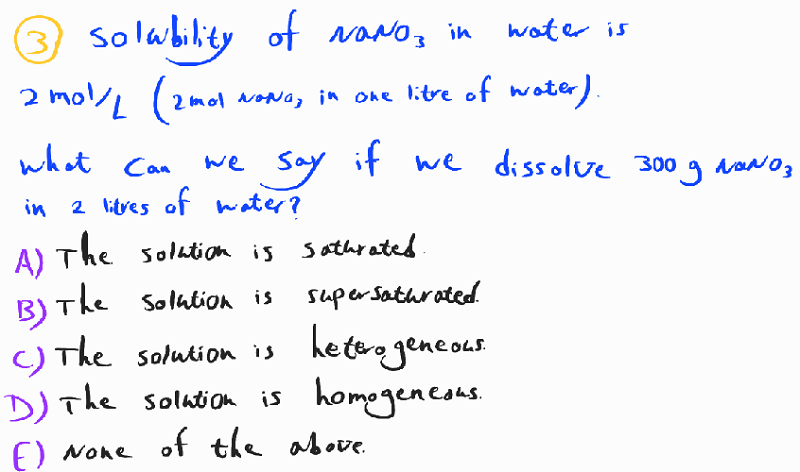 3 Solubility of NaNO3 in water is
2 mol/L (2 mol NaNO3 in one litre of water).
What can we say if we dissolve 300 g NaNO3
in 2 litres of water?
A) The solution is saturated.
B) The solution is supersaturated.
C) The solution is heterogeneous.
D) The solution is homogeneous.
E) None of the above.